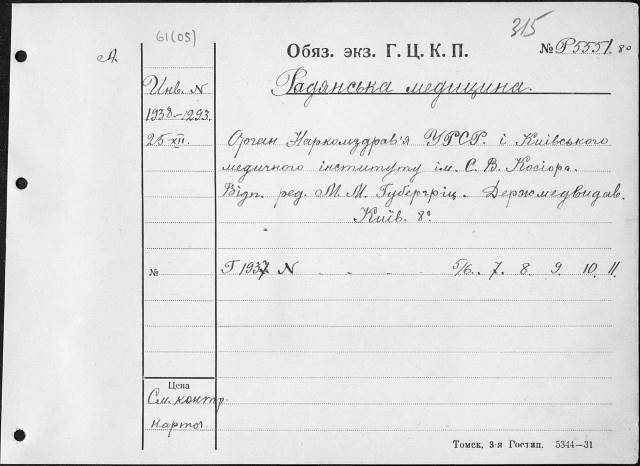 61(05)
315
А
Обяз. экз. Г. Ц. К. П.
№ Р5551. 8°
Инв. N
1938.-1293.
25 XII.
Радянська медицина.
Орган Наркомздрав'я УРСР. і Київського
медичного інституту ім. С. В. Косіора.
Відп. ред. М. М. Губергріц. Держмедвидав.
Київ. 8°
№
Г 1937 N . . . 5/6. 7. 8. 9. 10. 11.
Цена
См. контр.
карты
Томск, 3-я Гостип. 5344—31